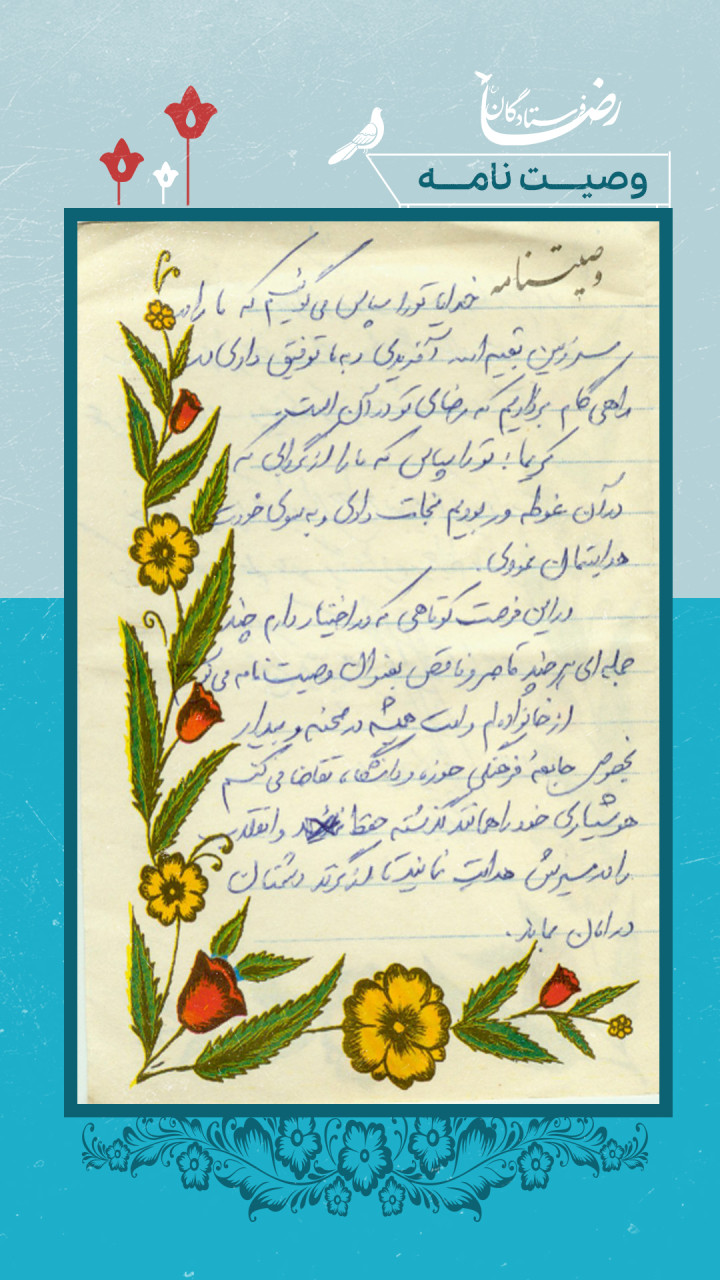 فرستادگان رضا
وصیت نامه
وصیتنامه
خدایا تو را سپاس می گوئیم که ما را در
سرزمین بقیه الله آفریدی و به ما توفیق دادی در
راهی گام برداریم که رضای تو در آن است.
کریما! تو را سپاس که ما را از گردابی که
در آن غوطه ور بودیم نجات دادی و به سوی خودت
هدایتمان نمودی.
در این فرصت کوتاهی که در اختیار دارم چند
جمله ای هر چند قاصر و ناقص بعنوان وصیت نامه می
از خانواده ام و امت همیشه در صحنه و بیدار
بخصوص جامعهٔ فرهنگی حوزه و دانشگاه، تقاضا می کنم
هوشیاری خود را همانند گذشته حفظ و انقلاب
را در مسیرش هدایت نمائید تا از گزند دشمنان
در امان بماند.